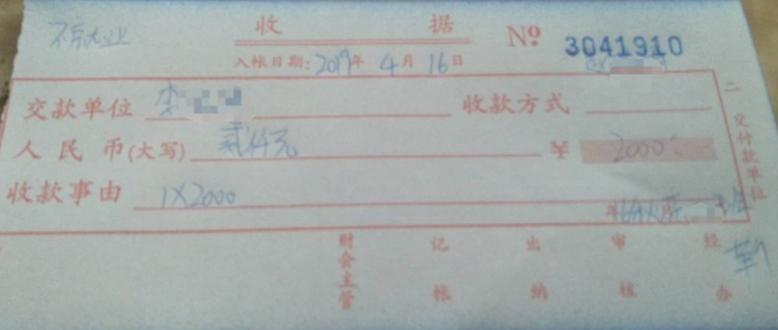 收 据 № 3041910
入帐日期:2019年 4月 16日
交款单位 李 收款方式
人民币(大写) 贰仟元 ¥ 2000
收款事由 1×2000
二 交付款单位
财会主管 记帐 出纳 审核 经办